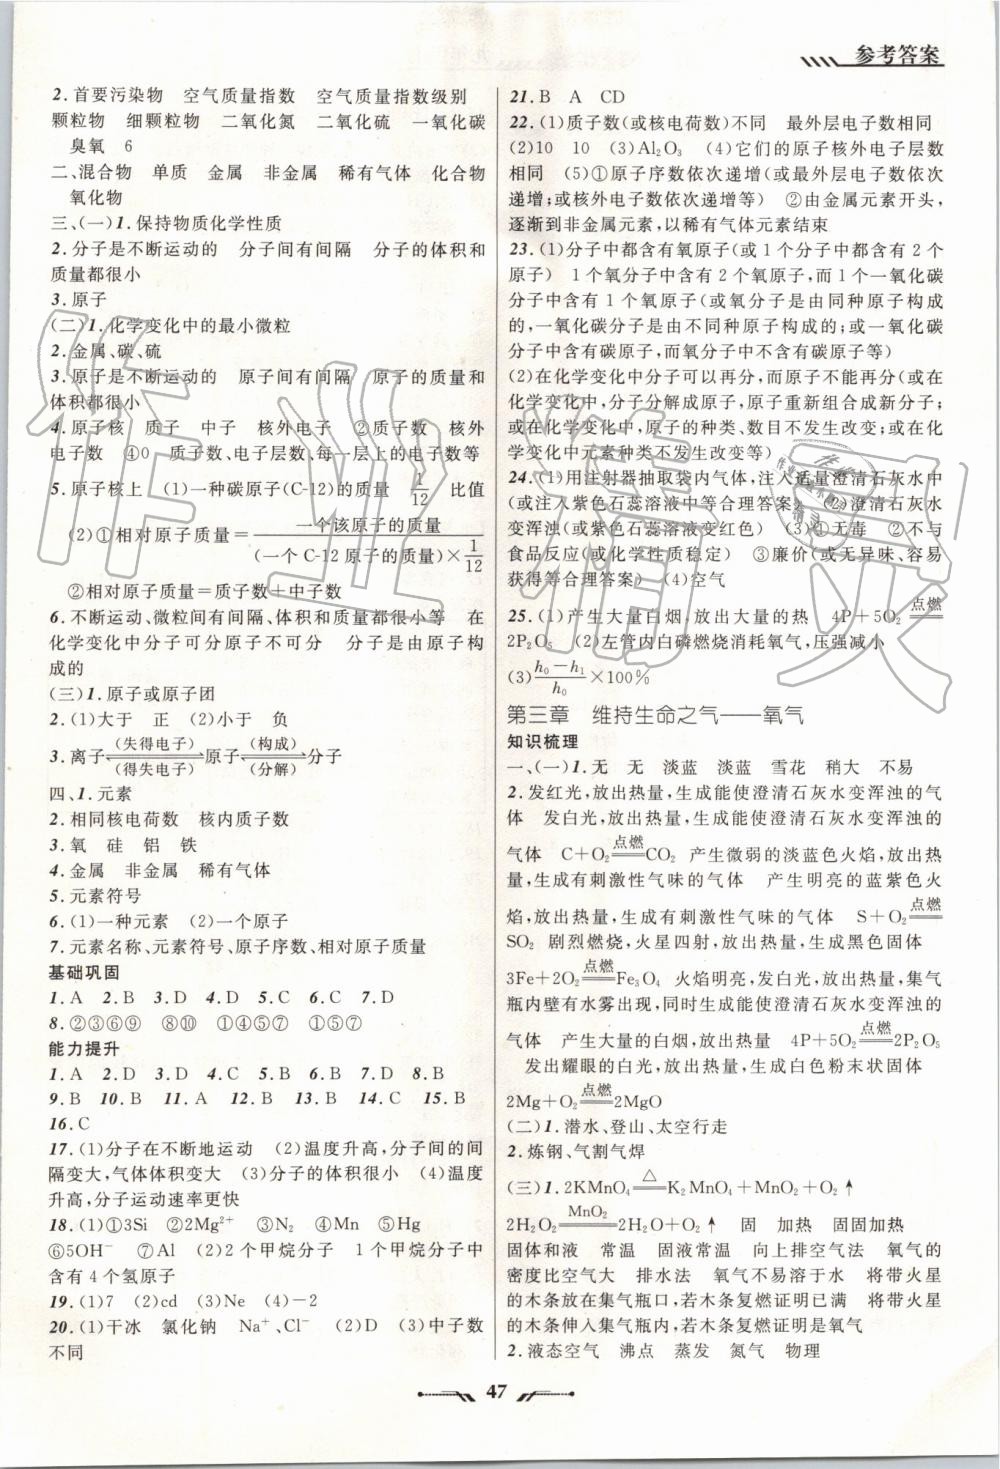 参考答案
2.首要污染物 空气质量指数 空气质量指数级别
颗粒物 细颗粒物 二氧化氮 二氧化硫 一氧化碳
臭氧 6
二、混合物 单质 金属 非金属 稀有气体 化合物
氧化物
三、(一)1.保持物质化学性质
2.分子是不断运动的 分子间有间隔 分子的体积和
质量都很小
3.原子
(二)1.化学变化中的最小微粒
2.金属、碳、硫
3.原子是不断运动的 原子间有间隔 原子的质量和
体积都很小
4.原子核 质子 中子 核外电子 ②质子数 核外
电子数 ④0 质子数、电子层数、每一层上的电子数等
5.原子核上 (1)一种碳原子(C-12)的质量 1/12 比值
(2)①相对原子质量=一个该原子的质量/(一个 C-12 原子的质量)×1/12
②相对原子质量=质子数+中子数
6.不断运动、微粒间有间隔、体积和质量都很小等 在
化学变化中分子可分原子不可分 分子是由原子构
成的
(三)1.原子或原子团
2.(1)大于 正 (2)小于 负
3.离子(失得电子)⇌(得失电子)原子(构成)⇌(分解)分子
四、1.元素
2.相同核电荷数 核内质子数
3.氧 硅 铝 铁
4.金属 非金属 稀有气体
5.元素符号
6.(1)一种元素 (2)一个原子
7.元素名称、元素符号、原子序数、相对原子质量
基础巩固
1.A 2.B 3.D 4.D 5.C 6.C 7.D
8.②③⑥⑨ ⑧⑩ ①④⑤⑦ ①⑤⑦
能力提升
1.A 2.D 3.D 4.C 5.B 6.B 7.D 8.B
9.B 10.B 11.A 12.B 13.B 14.C 15.B
16.C
17.(1)分子在不断地运动 (2)温度升高,分子间的间
隔变大,气体体积变大 (3)分子的体积很小 (4)温度
升高,分子运动速率更快
18.(1)①3Si ②2Mg²⁺ ③N₂ ④Mn ⑤Hg
⑥5OH⁻ ⑦Al (2)2 个甲烷分子 1个甲烷分子中
含有 4 个氢原子
19.(1)7 (2)cd (3)Ne (4)-2
20.(1)干冰 氯化钠 Na⁺、Cl⁻ (2)D (3)中子数
不同
21.B A CD
22.(1)质子数(或核电荷数)不同 最外层电子数相同
(2)10 10 (3)Al₂O₃ (4)它们的原子核外电子层数
相同 (5)①原子序数依次递增(或最外层电子数依次
递增;或核外电子数依次递增等) ②由金属元素开头,
逐渐到非金属元素,以稀有气体元素结束
23.(1)分子中都含有氧原子(或 1 个分子中都含有 2 个
原子) 1 个氧分子中含有 2 个氧原子,而 1 个一氧化碳
分子中含有 1 个氧原子(或氧分子是由同种原子构成
的,一氧化碳分子是由不同种原子构成的;或一氧化碳
分子中含有碳原子,而氧分子中不含有碳原子等)
(2)在化学变化中分子可以再分,而原子不能再分(或在
化学变化中,分子分解成原子,原子重新组合成新分子;
或在化学变化中,原子的种类、数目不发生改变;或在化
学变化中元素种类不发生改变等)
24.(1)用注射器抽取袋内气体,注入适量澄清石灰水中
(或注入紫色石蕊溶液中等合理答案) (2)澄清石灰水
变浑浊(或紫色石蕊溶液变红色) (3)①无毒 ②不与
食品反应(或化学性质稳定) ③廉价(或无异味、容易
获得等合理答案) (4)空气
25.(1)产生大量白烟,放出大量的热 4P+5O₂ 点燃══
2P₂O₅ (2)左管内白磷燃烧消耗氧气,压强减小
(3)(h₀-h₁)/h₀×100%
第三章 维持生命之气——氧气
知识梳理
一、(一)1.无 无 淡蓝 淡蓝 雪花 稍大 不易
2.发红光,放出热量,生成能使澄清石灰水变浑浊的气
体 发白光,放出热量,生成能使澄清石灰水变浑浊的
气体 C+O₂ 点燃══ CO₂ 产生微弱的淡蓝色火焰,放出热
量,生成有刺激性气味的气体 产生明亮的蓝紫色火
焰,放出热量,生成有刺激性气味的气体 S+O₂ 点燃══
SO₂ 剧烈燃烧,火星四射,放出热量,生成黑色固体
3Fe+2O₂ 点燃══ Fe₃O₄ 火焰明亮,发白光,放出热量,集气
瓶内壁有水雾出现,同时生成能使澄清石灰水变浑浊的
气体 产生大量的白烟,放出热量 4P+5O₂ 点燃══ 2P₂O₅
发出耀眼的白光,放出热量,生成白色粉末状固体
2Mg+O₂ 点燃══ 2MgO
(二)1.潜水、登山、太空行走
2.炼钢、气割气焊
(三)1.2KMnO₄ △══ K₂MnO₄+MnO₂+O₂↑
2H₂O₂ MnO₂══ 2H₂O+O₂↑ 固 加热 固固加热
固体和液 常温 固液常温 向上排空气法 氧气的
密度比空气大 排水法 氧气不易溶于水 将带火星
的木条放在集气瓶口,若木条复燃证明已满 将带火星
的木条伸入集气瓶内,若木条复燃证明是氧气
2.液态空气 沸点 蒸发 氮气 物理
47
作业精灵